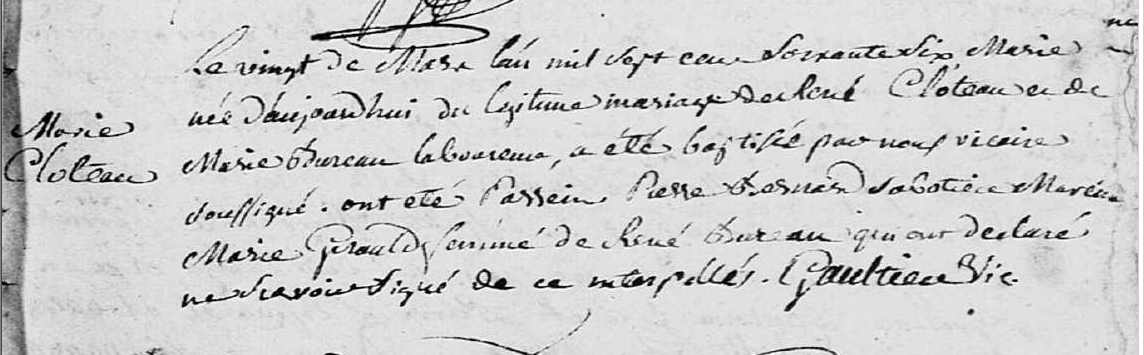 Le vingt de Mars l'an mil sept cen soixante six Marie
née d'aujourdhui du legitime mariage de René Cloteau et de
Marie
Cloteau
Marie Bureau laboureurs, a été baptisée par nous vicaire
soussigné. ont été Parrein Pierre sabotier Mareine
Marie Girauld femme de René Bureau qui ont declaré
ne scavoir signé de ce interpellés. Gaultier Vic.